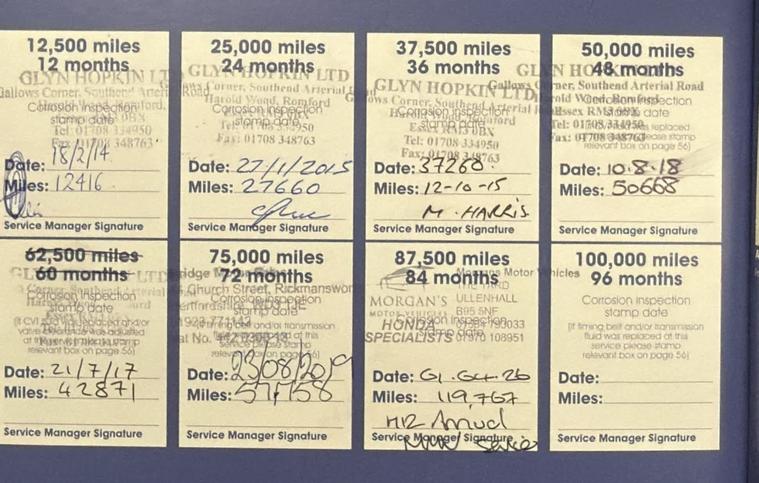 12,500 miles
12 months
GLYN HOPKIN LTD
Gallows Corner, Southend Arterial Road
Harold Wood, Romford,
Corrosion inspection
stamp date
Tel: 01708 334950
Fax: 01708 348763
Date: 18/2/14
Miles: 12416
Service Manager Signature
25,000 miles
24 months
GLYN HOPKIN LTD
Gallows Corner, Southend Arterial Road
Harold Wood, Romford
Corrosion inspection
stamp date
Tel: 01708 334950
Fax: 01708 348763
Date: 27/1/2015
Miles: 27660
Service Manager Signature
37,500 miles
36 months
GLYN HOPKIN LTD
Gallows Corner, Southend Arterial Road
Harold Wood, Romford
Corrosion inspection
stamp date
Essex RM3 0BX
Tel: 01708 334950
Fax: 01708 348763
Date: 37260.
Miles: 12-10-15
M. HARRIS
Service Manager Signature
50,000 miles
48 months
GLYN HOPKIN LTD
Gallows Corner, Southend Arterial Road
Harold Wood, Romford
Corrosion inspection
stamp date
Essex RM3 0BX
Tel: 01708 334950
Fax: 01708 348763
relevant box on page 56)
Date: 10.8.18
Miles: 50668
Service Manager Signature
62,500 miles
60 months
Corrosion inspection
stamp date
relevant box on page 56)
Date: 21/7/17
Miles: 42871
Service Manager Signature
75,000 miles
72 months
Church Street, Rickmansworth
Corrosion inspection
stamp date
(If timing belt and/or transmission
service please stamp
relevant box on page 56)
Date: 23/08/2019
Miles: 57,158
Service Manager Signature
87,500 miles
84 months
Morgans Motor Vehicles
ULLENHALL
B95 5NF
MORGAN'S
MOTOR VEHICLES
HONDA
SPECIALISTS
Corrosion inspection
stamp date
07970 108951
Date:
Miles: 119,767
Service Manager Signature
100,000 miles
96 months
Corrosion inspection
stamp date
(If timing belt and/or transmission
fluid was replaced at this
service please stamp
relevant box on page 56)
Date:
Miles:
Service Manager Signature